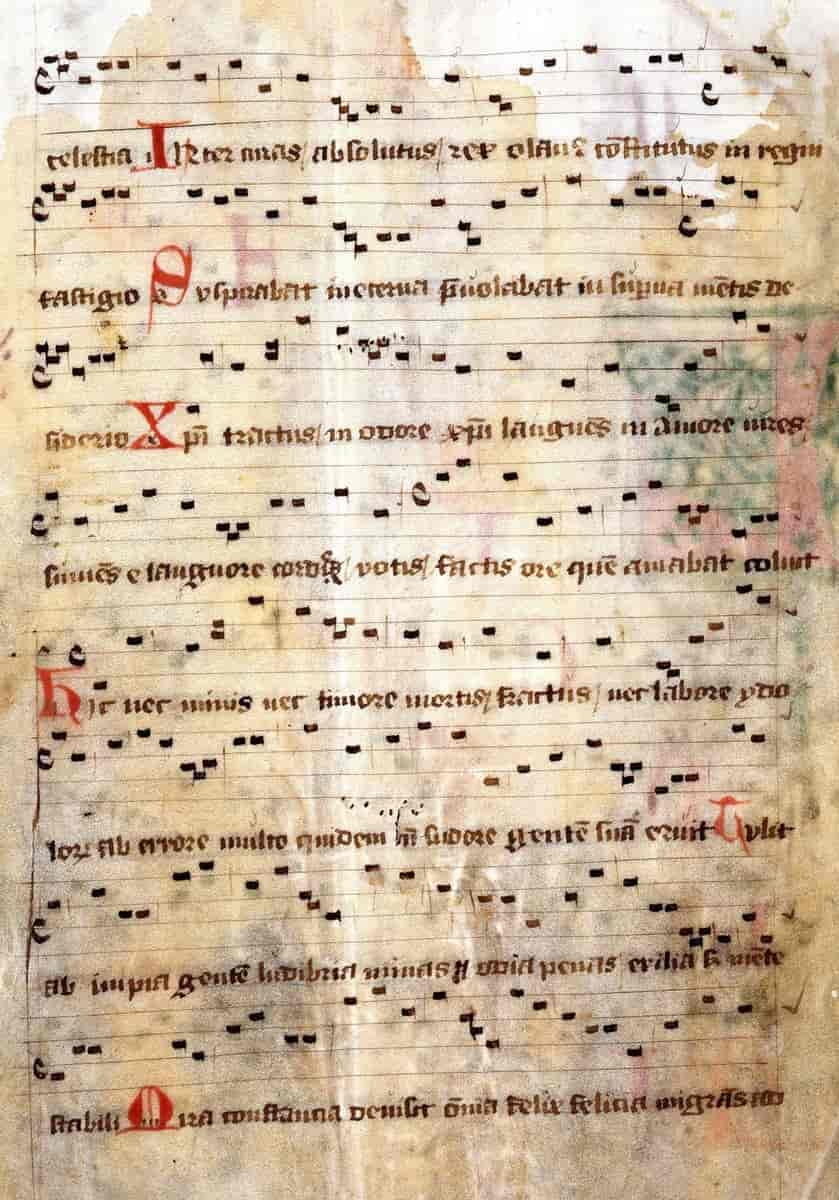 celestia INter curas absolutus rex olauus cõstitutus in regni
fastigio Suspirabat in eterna p̃uolabat in sup̃na mẽtis de
siderio Xpi tractus in odore xp̃i languẽs in amore uires
sumẽs e languore cordis uotis factis ore quẽ amabat coluit
Hic nec minis nec timore mortis fractus nec labore ydo
lorũ ab errore multo quidem cũ sudore gentẽ suã eruit Tulit
ab impia gentẽ ludibria minas odia penas exilia s; mẽte
stabili Mira constancia deuisit õnia felix felicia migrãs ad